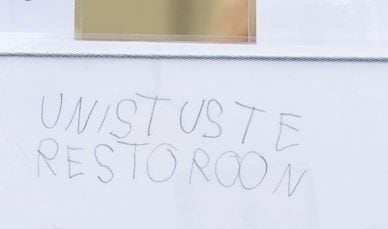 UNISTUSTE
RESTOROON